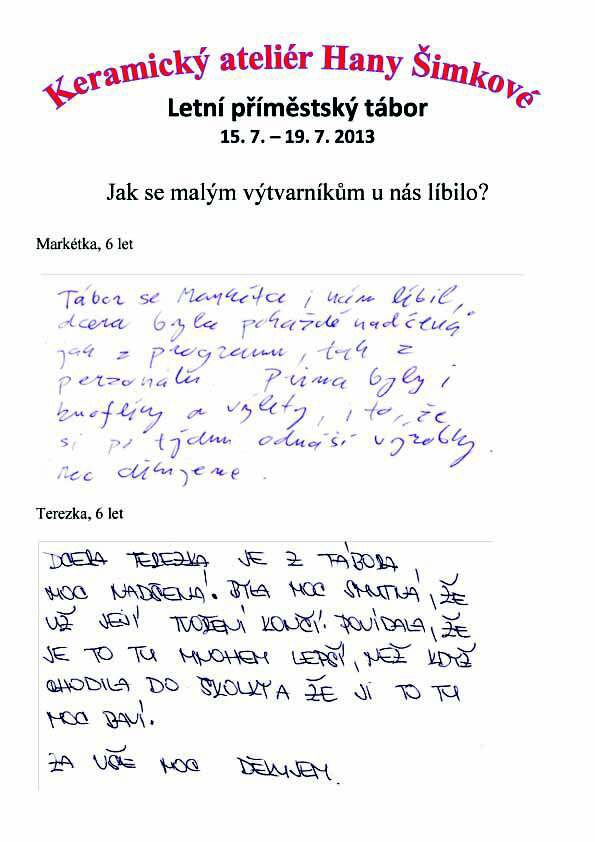 Keramický ateliér Hany Šimkové
Letní příměstský tábor
15. 7. – 19. 7. 2013
Jak se malým výtvarníkům u nás líbilo?
Markétka, 6 let
Tábor se Markétce i nám líbil,
dcera byla pokaždé nadšená
jak z programu, tak z
personálu. Prima byly i
knoflíky a výlety, i to, že
si po týdnu odnáší výrobky.
Moc děkujeme.
Terezka, 6 let
DCERA TEREZKA JE Z TÁBORA
MOC NADŠENÁ. BYLA MOC SMUTNÁ, ŽE
UŽ JEJÍ TVOŘENÍ KONČÍ. POVÍDALA, ŽE
JE TO TU MNOHEM LEPŠÍ, NEŽ KDYŽ
CHODILA DO ŠKOLKY A ŽE JI TO TU
MOC BAVÍ.
ZA VŠE MOC DĚKUJEM.